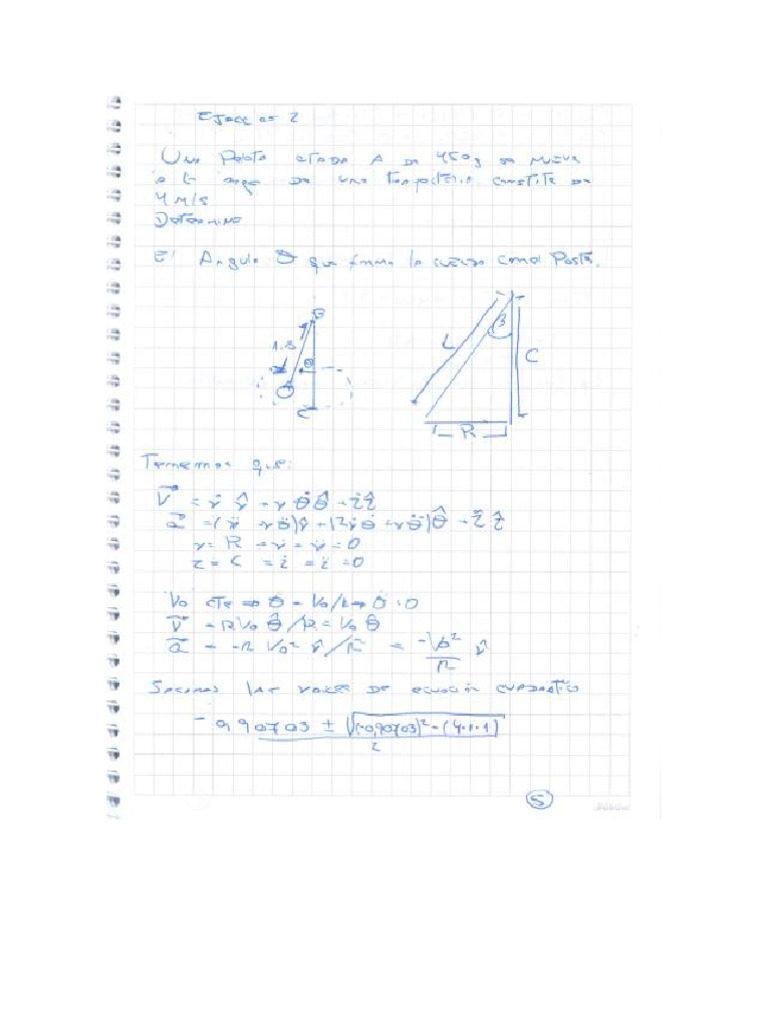 Ejercicio 2
Una Pelota atada A de 450g se mueve
a lo largo de una trayectoria constante de
4 m/s
Determine
El Angulo θ que forma la cuerda con el Poste.
B
1.8
θ
A
C
L
β
C
R
Tenemos que:
V = ṙ r̂ + r θ̇ θ̂ + ż ẑ
a = (r̈ - rθ̇)r̂ + (2ṙθ̇ + rθ̈)θ̂ + z̈ ẑ
r = R = ṙ = r̈ = 0
z = C = ż = z̈ = 0
Vo cte ⇒ θ̇ = Vo/R ⇒ θ̈ = 0
V = R Vo θ̂/R = Vo θ̂
a = -R Vo² r̂/R² = -Vo²/R r̂
Sacamos las raices de ecuación cuadratica
-0,90703 ± √(-0,90703)² - (4·1·1)
2
5